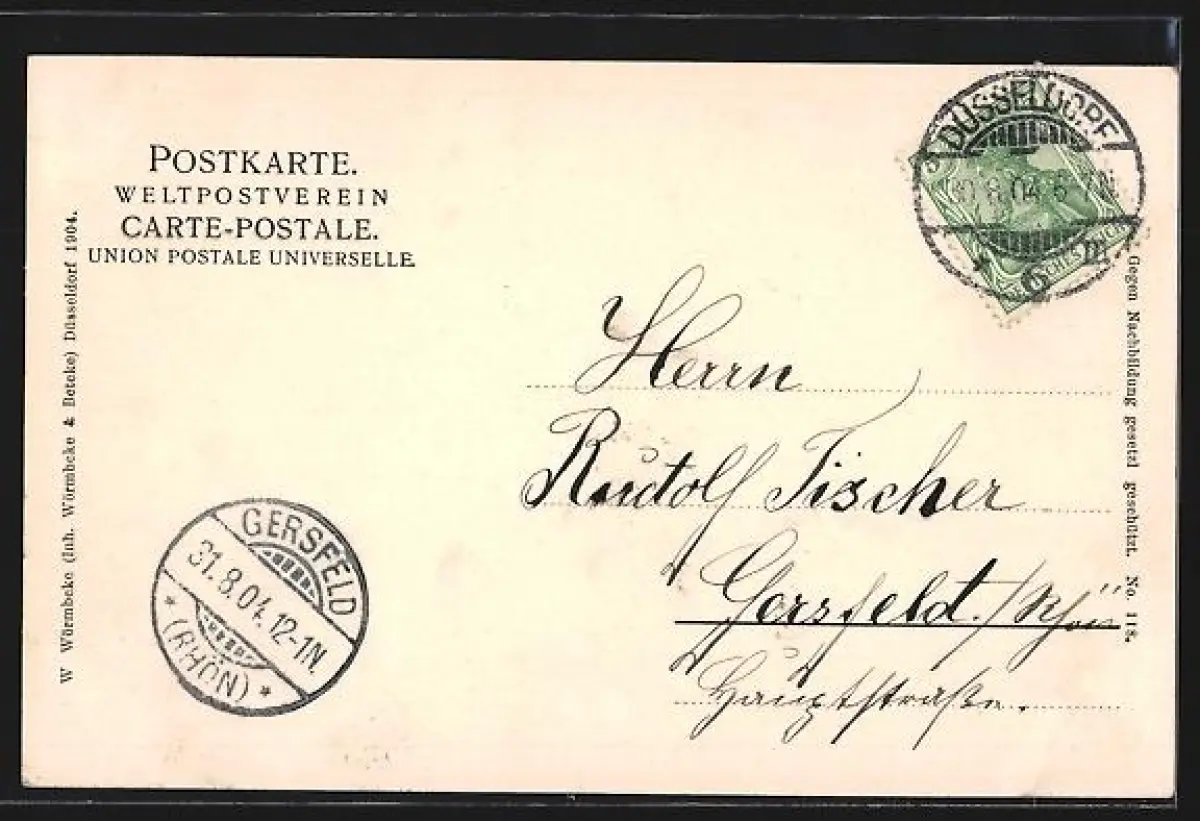 POSTKARTE.
WELTPOSTVEREIN
CARTE-POSTALE.
UNION POSTALE UNIVERSELLE
DÜSSELDORF
8.04 6-7N
6 m
Herrn
Rudolf Tischer
Gersfeld. / Rhön
Hauptstraße.
GERSFELD
31.8.04.12-1N.
* (RHÖN) *
W Würmbcke (Inh. Wörmbcke & Beteke) Düsseldorf 1904.
Gegen Nachbildung gesetzl geschützt. No. 118.